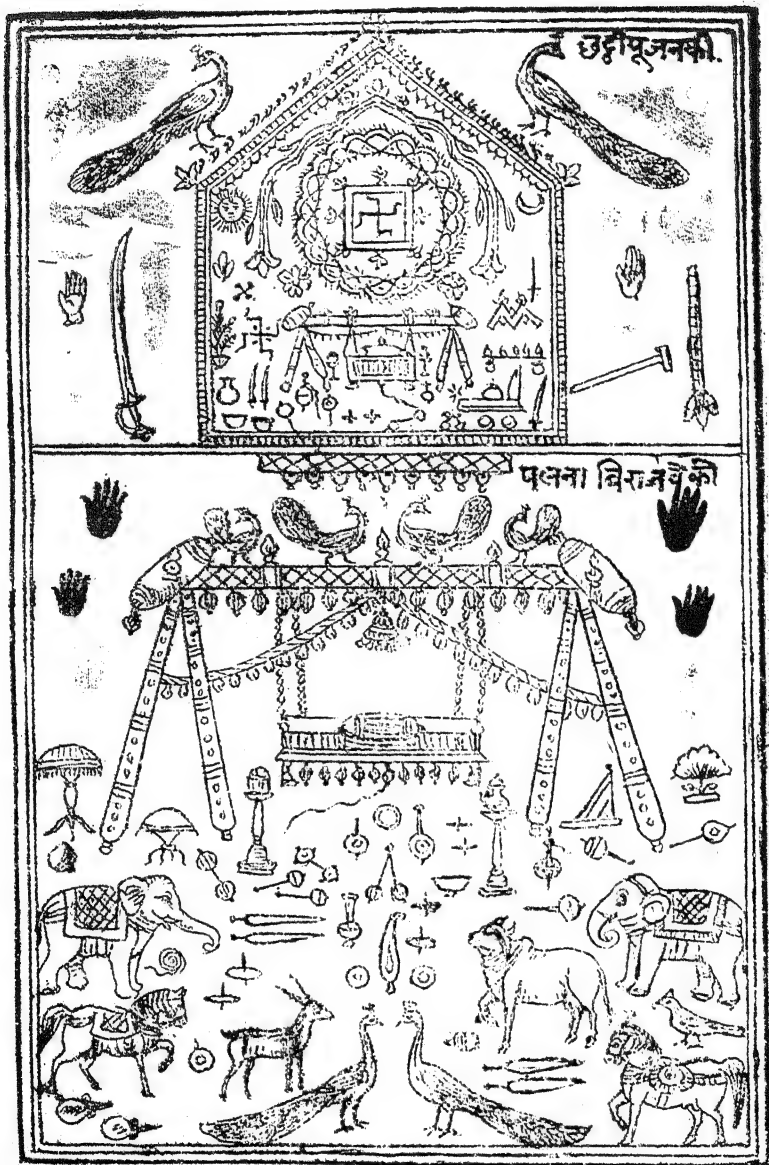 छट्ठी पूजनकी.
पलना विराजवेकी